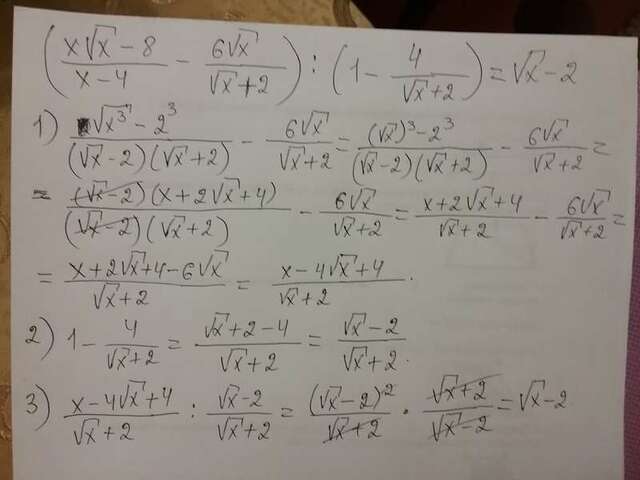 (x√x - 8 / x - 4 - 6√x / √x + 2) : (1 - 4 / √x + 2) = √x - 2
1) √x³ - 2³ / (√x - 2)(√x + 2) - 6√x / √x + 2 = (√x)³ - 2³ / (√x - 2)(√x + 2) - 6√x / √x + 2 =
= (√x - 2)(x + 2√x + 4) / (√x - 2)(√x + 2) - 6√x / √x + 2 = x + 2√x + 4 / √x + 2 - 6√x / √x + 2 =
= x + 2√x + 4 - 6√x / √x + 2 = x - 4√x + 4 / √x + 2 .
2) 1 - 4 / √x + 2 = √x + 2 - 4 / √x + 2 = √x - 2 / √x + 2 .
3) x - 4√x + 4 / √x + 2 : √x - 2 / √x + 2 = (√x - 2)² / √x + 2 · √x + 2 / √x - 2 = √x - 2